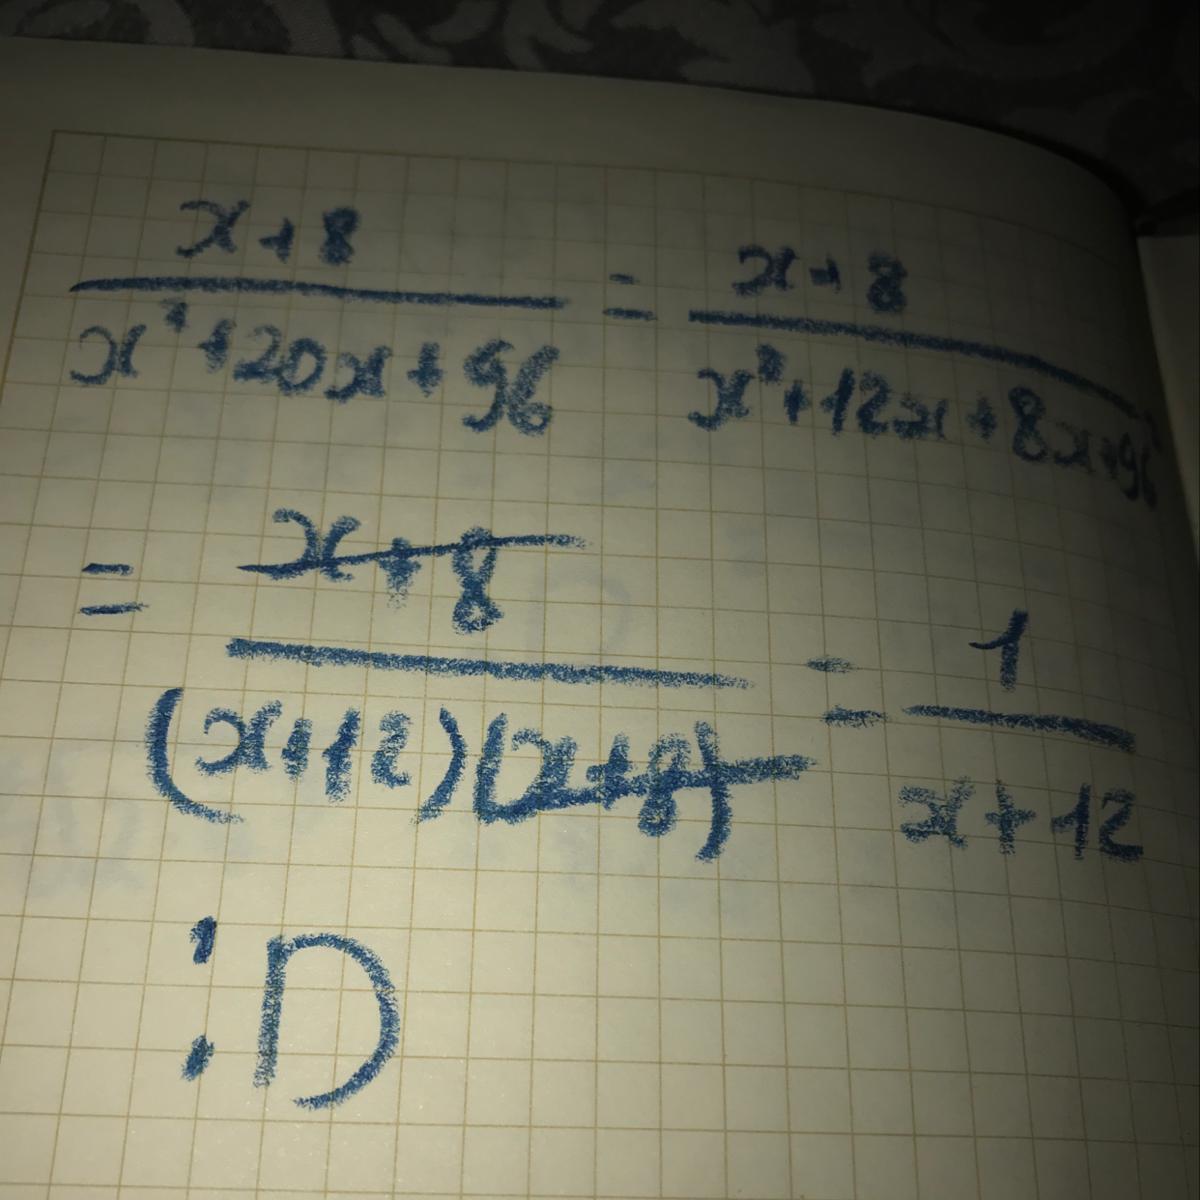 x+8 / x²+20x+96 = x+8 / x²+12x+8x+96
= x+8 / (x+12)(x+8) = 1 / x+12
:D